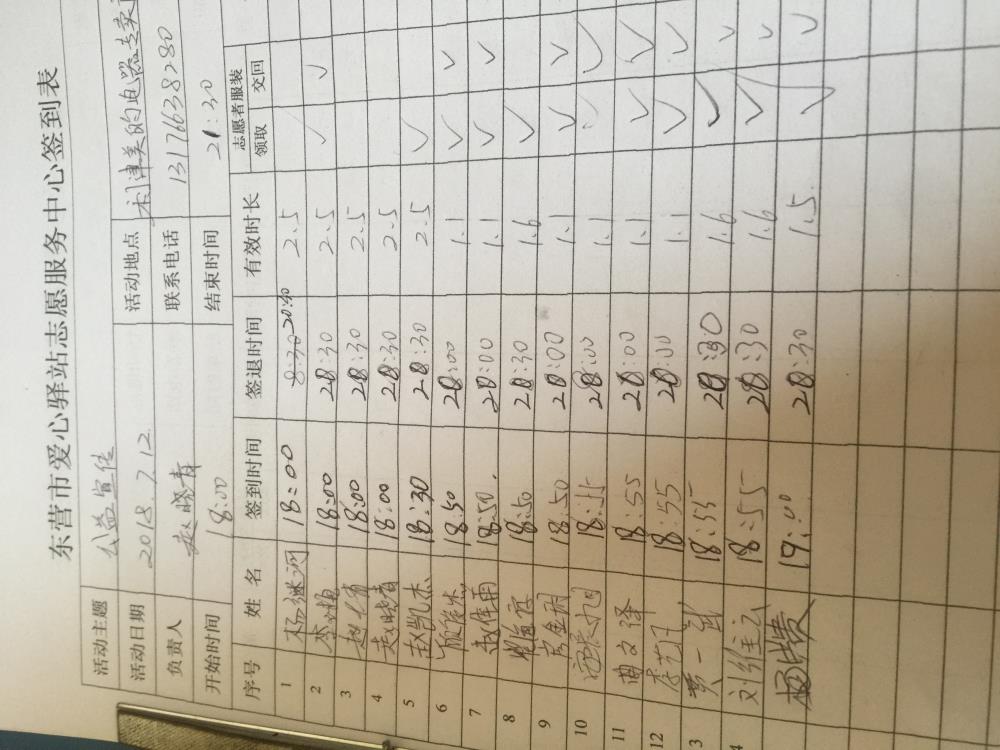 东营市爱心驿站志愿服务中心签到表
活动主题 公益宣传 活动地点 利津美的电器专卖
活动日期 2018.7.12 联系电话 13176638280
负责人 赵晓青 结束时间 21:30
开始时间 18:00
序号 姓 名 签到时间 签退时间 有效时长 志愿者服装 领取 交回
1 杨继河 18:00 8:30 20:30 2.5
2 18:00 20:30 2.5 ✓ ✓
3 18:00 20:30 2.5
4 赵晓青 18:00 20:30 2.5
5 赵凯杰 18:30 20:30 2.5 ✓
6 18:50 20:00 1.1 ✓ ✓
7 18:50. 20:00 1.1 ✓ ✓
8 18:50 20:30 1.6 ✓
9 18:50 20:00 1.1 ✓ ✓
10 18:55 20:00 1.1 ✓ ✓
11 曲文泽 18:55 20:00 1.1 ✓ ✓
12 18:55 20:00 1.1 ✓ ✓
3 黄一 18:55 20:30 1.6 ✓ ✓
4 刘维云 18:55 20:30 1.6 ✓ ✓
19:00 20:30 1.5. ✓ ✓